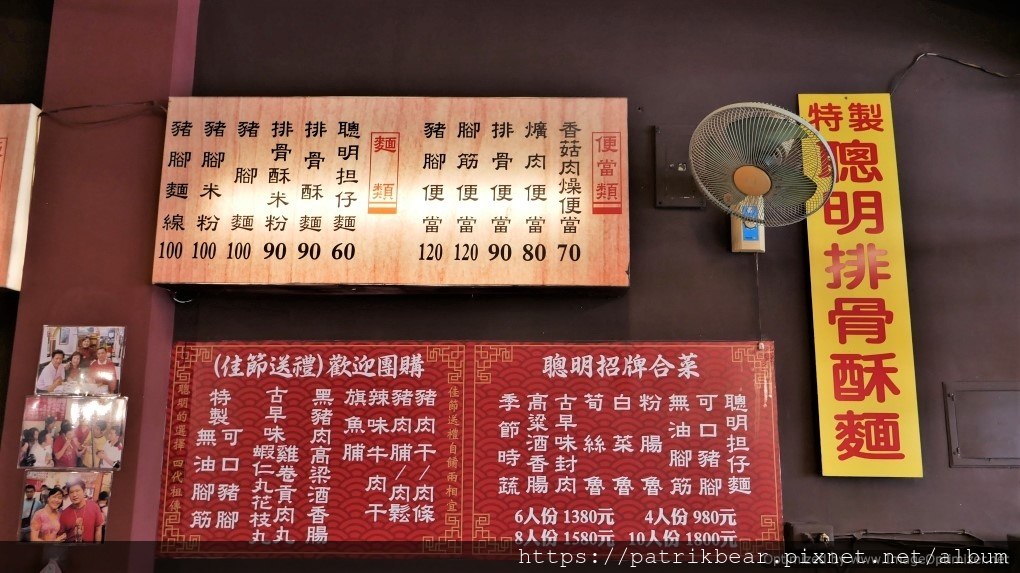 便當類
香菇肉燥便當 70
爌肉便當 80
排骨便當 90
腳筋便當 120
豬腳便當 120
麵類
聰明担仔麵 60
排骨酥麵 90
排骨酥米粉 90
豬腳麵 100
豬腳米粉 100
豬腳麵線 100
特製
聰明排骨酥麵
(佳節送禮)歡迎團購
佳節送禮自購兩相宜
豬肉干/肉條
豬肉脯/肉鬆
辣味牛肉干
旗魚脯
黑豬肉高梁酒香腸
古早味雞卷貢丸
蝦仁丸花枝丸
特製可口豬腳
無油腳筋
聰明的選擇 四代祖傳
聰明招牌合菜
聰明担仔麵
可口豬腳
無油腳筋
粉腸魯
白菜魯
荀絲魯
古早味封肉
高粱酒香腸
季節時蔬
6人份 1380元 4人份 980元
8人份 1580元 10人份 1800元
https://patrikbear.pixnet.net/album